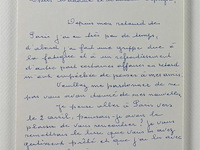 Depuis mon retour de
Paris j'ai eu très peu de temps,
d'abord j'ai fait une grippe due à
la fatigue et à un refroidissement
d'autre part certaines affaires en retard
m'ont empêchée de penser à mes amis
Veuillez me pardonner de ne
pas vous avoir donné de mes nouvelles
Je pense aller à Paris vers
le 2 avril, pourrai-je avoir le
plaisir de vous rencontrer? Je vous
remettrai le livre que vous avez
gentiment prêté et que j'ai lu avec